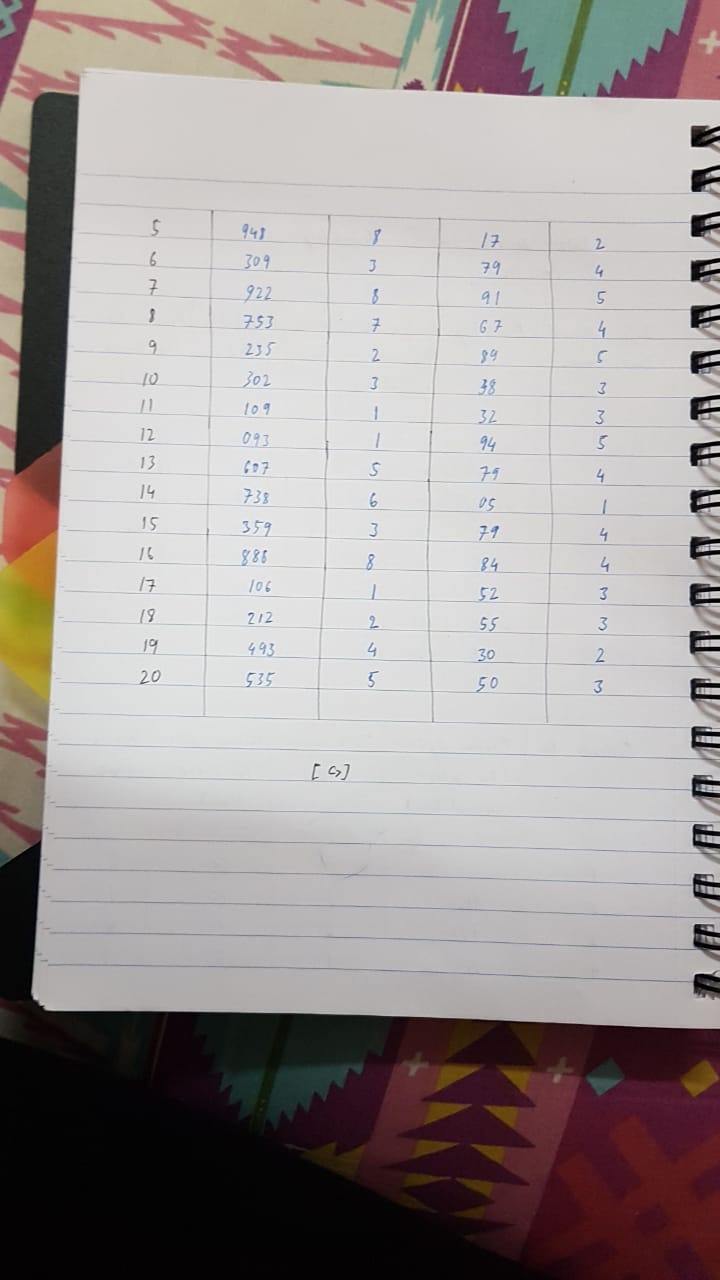 5 948 8 17 2
6 309 3 79 4
7 922 8 91 5
8 753 7 67 4
9 235 2 89 5
10 302 3 38 3
11 109 1 32 3
12 093 1 94 5
13 607 5 79 4
14 738 6 05 1
15 359 3 79 4
16 886 8 84 4
17 106 1 52 3
18 212 2 55 3
19 493 4 30 2
20 535 5 50 3